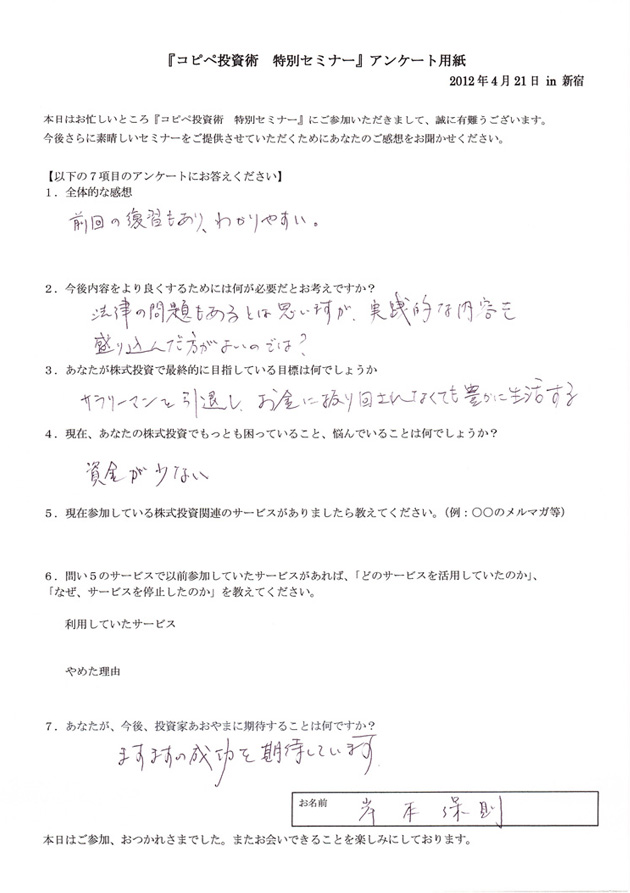 『コピペ投資術　特別セミナー』アンケート用紙
2012年4月21日 in 新宿
本日はお忙しいところ『コピペ投資術　特別セミナー』にご参加いただきまして、誠に有難うございます。
今後さらに素晴しいセミナーをご提供させていただくためにあなたのご感想をお聞かせください。
【以下の７項目のアンケートにお答えください】
１．全体的な感想
前回の復習もあり、わかりやすい。
２．今後内容をより良くするためには何が必要だとお考えですか？
法律の問題もあるとは思いますが、実践的な内容を
盛り込んだ方がよいのでは？
３．あなたが株式投資で最終的に目指している目標は何でしょうか
サラリーマンを引退し、お金に振り回されなくても豊かに生活する
４．現在、あなたの株式投資でもっとも困っていること、悩んでいることは何でしょうか？
資金が少ない
５．現在参加している株式投資関連のサービスがありましたら教えてください。（例：○○のメルマガ等）
６．問い５のサービスで以前参加していたサービスがあれば、「どのサービスを活用していたのか」、
「なぜ、サービスを停止したのか」を教えてください。
利用していたサービス
やめた理由
７．あなたが、今後、投資家あおやまに期待することは何ですか？
ますますの成功を期待しています
お名前 岸本保則
本日はご参加、おつかれさまでした。またお会いできることを楽しみにしております。